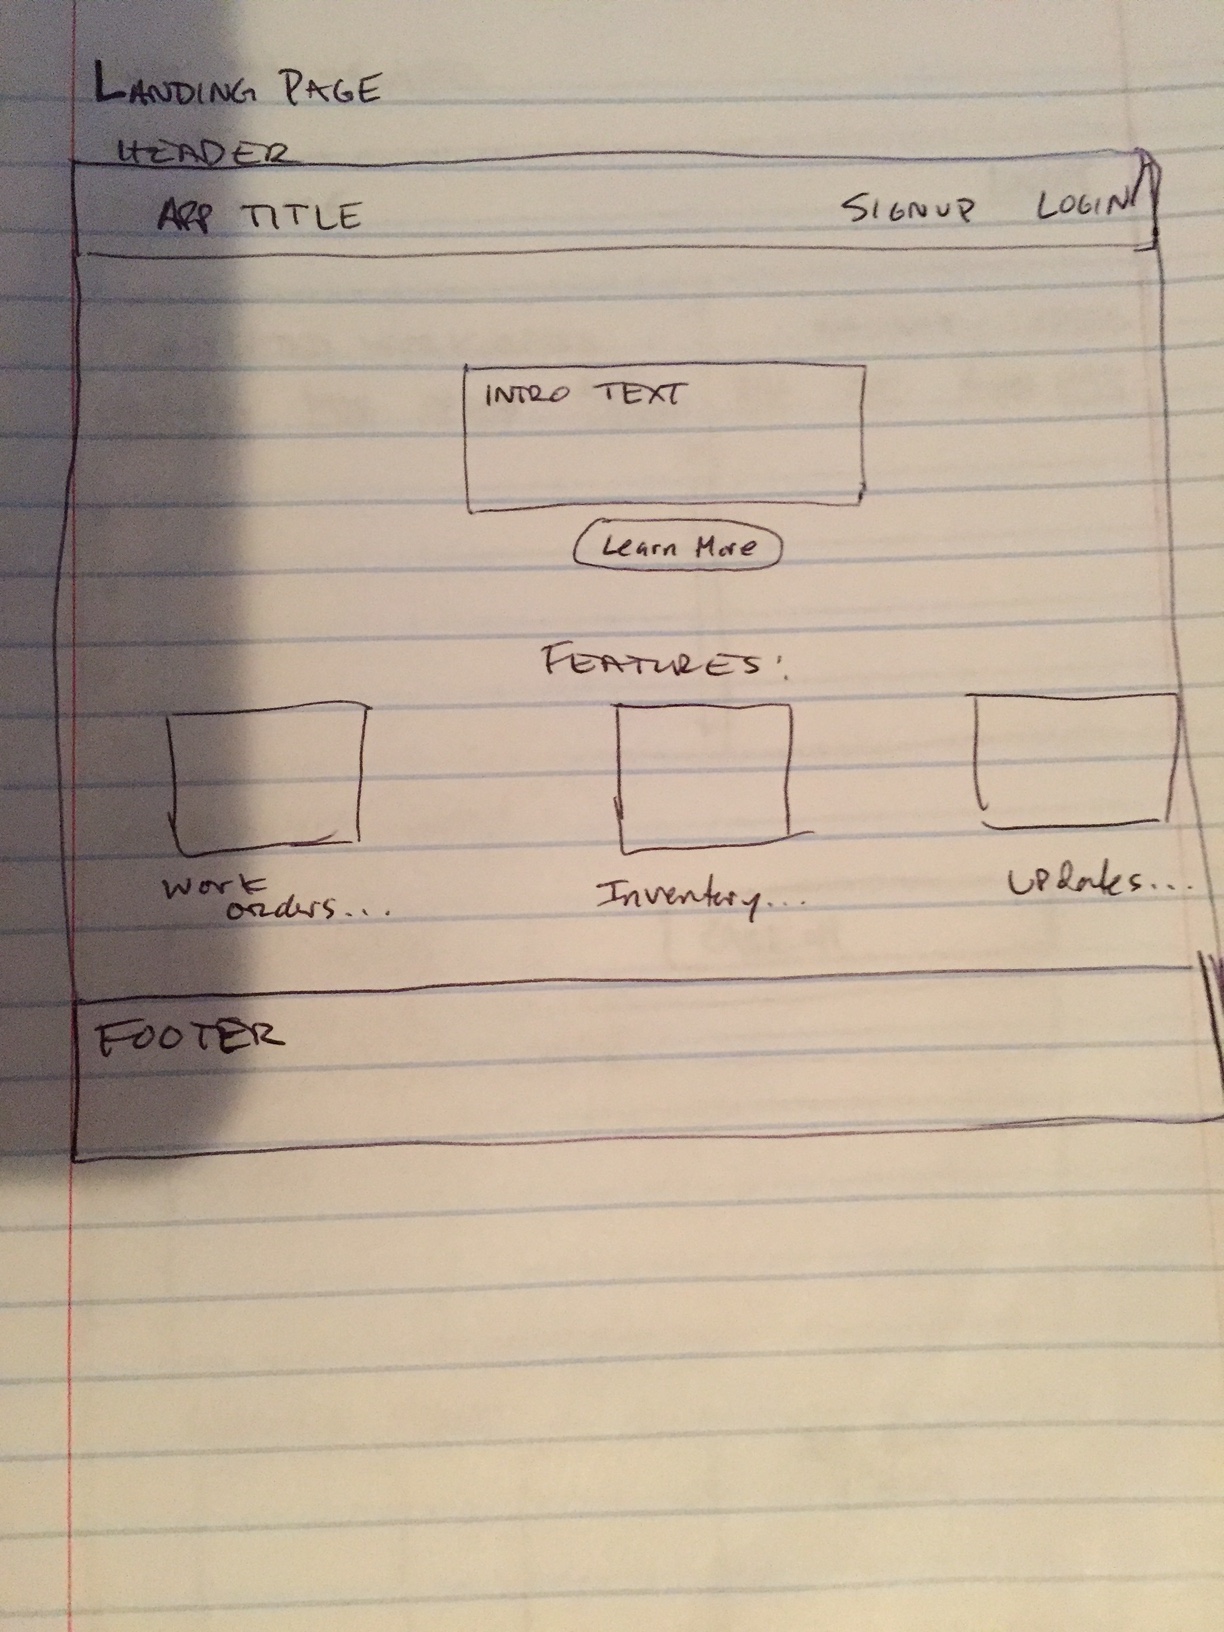 LANDING PAGE
HEADER
APP TITLE SIGNUP LOGIN
INTRO TEXT
Learn More
FEATURES:
Work
orders...
Inventory...
Updates...
FOOTER